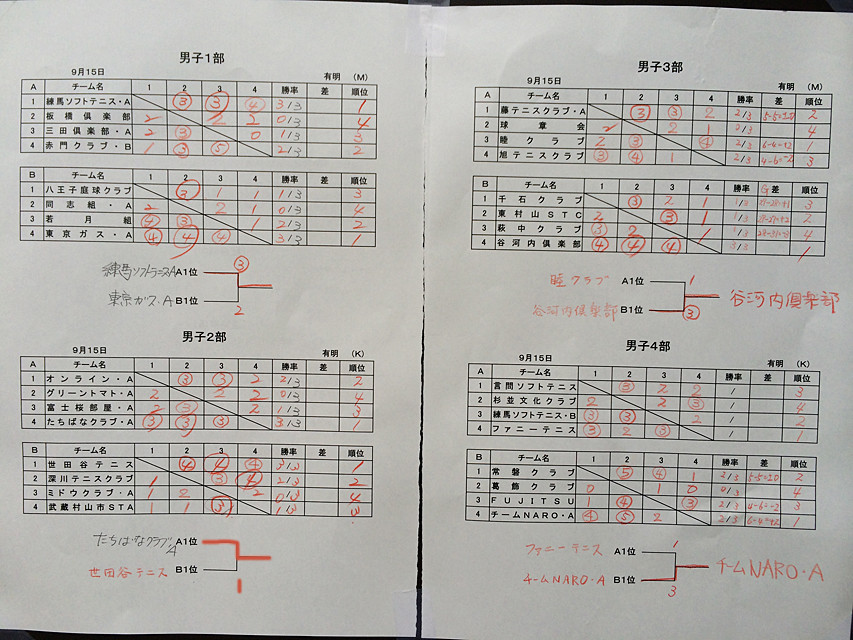 男子1部
9月15日 有明 (M)
A チーム名 1 2 3 4 勝率 差 順位
1 練馬ソフトテニス・A ③ ③ ④ 3/3 1
2 板橋倶楽部 2 2 2 0/3 4
3 三田倶楽部・A 2 ③ 0 1/3 3
4 赤門クラブ・B 1 ③ ⑤ 2/3 2
B チーム名 1 2 3 4 勝率 差 順位
1 八王子庭球クラブ ③ 1 1 1/3 3
2 同志組・A 2 2 1 0/3 4
3 若月組 ④ ③ 1 2/3 2
4 東京ガス・A ④ ④ ④ 3/3 1
練馬ソフトテニスA A1位 ③
東京ガス・A B1位 2
男子2部
9月15日 有明 (K)
A チーム名 1 2 3 4 勝率 差 順位
1 オンライン・A ③ ③ 2 2/3 2
2 グリーントマト・A 2 2 2 0/3 4
3 富士桜部屋・A 2 ③ 2 1/3 3
4 たちばなクラブ・A ③ ③ ③ 3/3 1
B チーム名 1 2 3 4 勝率 差 順位
1 世田谷テニス ④ ④ ④ 3/3 1
2 深川テニスクラブ 1 ③ ④ 2/3 2
3 ミドウクラブ・A 1 2 2 0/3 4
4 武蔵村山市STA 1 1 ③ 1/3 3
たちばなクラブA A1位
世田谷テニス B1位 1
男子3部
9月15日 有明 (M)
A チーム名 1 2 3 4 勝率 差 順位
1 藤テニスクラブ・A ③ ③ 2 2/3 5-5=±0 2
2 球章会 2 2 1 0/3 4
3 睦クラブ 2 ③ ④ 2/3 6-4=+2 1
4 旭テニスクラブ ③ ④ 1 2/3 4-6=-2 3
B チーム名 1 2 3 4 勝率 G差 順位
1 千石クラブ ③ 2 1 1/3 3
2 東村山STC 2 ③ 1 1/3 2
3 萩中クラブ ③ 2 1 1/3 4
4 谷河内倶楽部 ④ ④ ④ 3/3 1
睦クラブ A1位 1
谷河内倶楽部
谷河内倶楽部 B1位 ③
男子4部
9月15日 有明 (K)
A チーム名 1 2 3 4 勝率 差 順位
1 言問ソフトテニス ③ 2 2 / 3
2 杉並文化クラブ 2 2 ③ / 4
3 練馬ソフトテニス・B ③ ③ 2 / 2
4 ファニーテニス ③ 2 ③ / 1
B チーム名 1 2 3 4 勝率 差 順位
1 常磐クラブ ⑤ ④ 1 2/3 5-5=±0 2
2 葛飾クラブ 0 1 0 0/3 4
3 FUJITSU 1 ④ ③ 2/3 4-6=-2 3
4 チームNARO・A ④ ⑤ 2 2/3 6-4=+2 1
ファニーテニス A1位 1
チームNARO・A
チームNARO・A B1位 3